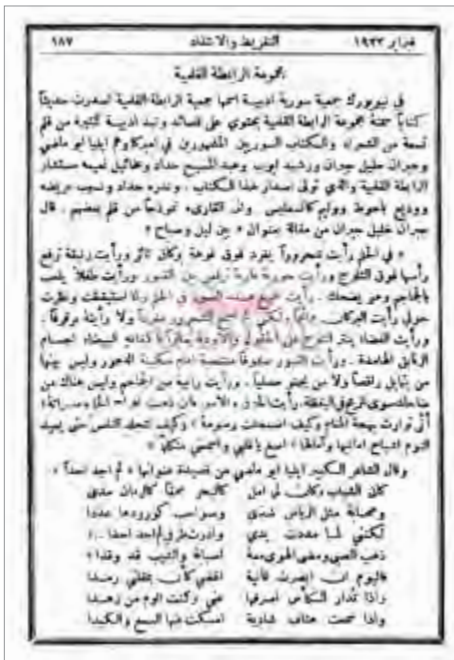 فبراير ١٩٢٢ التقريظ والانتقاد ١٨٧
مجموعة الرابطة القلمية
في نيويورك جمعية سورية ادبية اسمها جمعية الرابطة القلمية اصدرت حديثاً
كتاباً سمته مجموعة الرابطة القلمية يحتوي على قصائد ونبذ ادبية كثيرة من قلم
تسعة من الشعراء والكتاب السوريين المشهورين في اميركا وهم ايليا ابو ماضي
وجبران خليل جبران ورشيد ايوب وعبد المسيح حداد ومخائيل نعيمه مستشار
الرابطة القلمية والذي تولى اصدار هذا الكتاب . وندره حداد ونسيب عريضه
ووديع باحوط ووليم كاتسفليس . والى القارىء نموذجاً من قلم بعضهم . قال
جبران خليل جبران من مقالة بعنوان « بين ليل وصباح »
« في الحلم رأيت شحروراً يغرد فوق فوهة بركان ثائر ورأيت زنبقة ترفع
رأسها فوق الثلوج ورأيت حورية عارية ترقص بين القبور ورأيت طفلاً يلعب
بالجماجم وهو يضحك . رأيت جميع هذه الصور في الحلم ولما استيقظت ونظرت
حولي رأيت البركان ولكني لم اسمع الشحرور مغرداً ولا رأيته مرفرفاً .
ورأيت الفضاء ينثر الثلوج على الحقول والاودية ساتراً باكفانه البيضاء اجسام
الزنابق الهامدة . ورأيت القبور صفوفاً منتصبة امام سكينة الدهور وليس بينها
من يتمايل راقصاً ولا من يجثو مصلياً . ورأيت رابية من الجماجم وليس هناك من
ضاحك سوى الريح في اليقظة رأيت الحزن والاسى فاين ذهبت افراح الحلم ومسراته؟
أنّى توارت بهجة المنام وكيف اضمحلت رسومه؟ وكيف تتجلد النفس حتى يعيد
النوم اشباح امانيها وآمالها؟ اصغ يا قلبي واسمعني متكلماً »
وقال الشاعر الكبير ايليا ابو ماضي من قصيدة عنوانها « لم اجد احداً » .
كان الشباب وكان لي امل كالبحر عمقاً كالزمان مدى
وصحابة مثل الرياض شذى وصواحب كورودها عددا
لكنني لما مددت يدي وادرت طرفي لم اجد احدا ..!
ذهب الصبى ومضى الهوى معه اصبابة والشيب قد وفدا؟
فاليوم ان ابصرت غانية اغضي كأن بمقلتي رمدا
واذا تُدار الكأس اصرفها عني وكنت الوم من زهدا
واذا سمعت هتاف شادية امسكت عنها السمع والكبدا